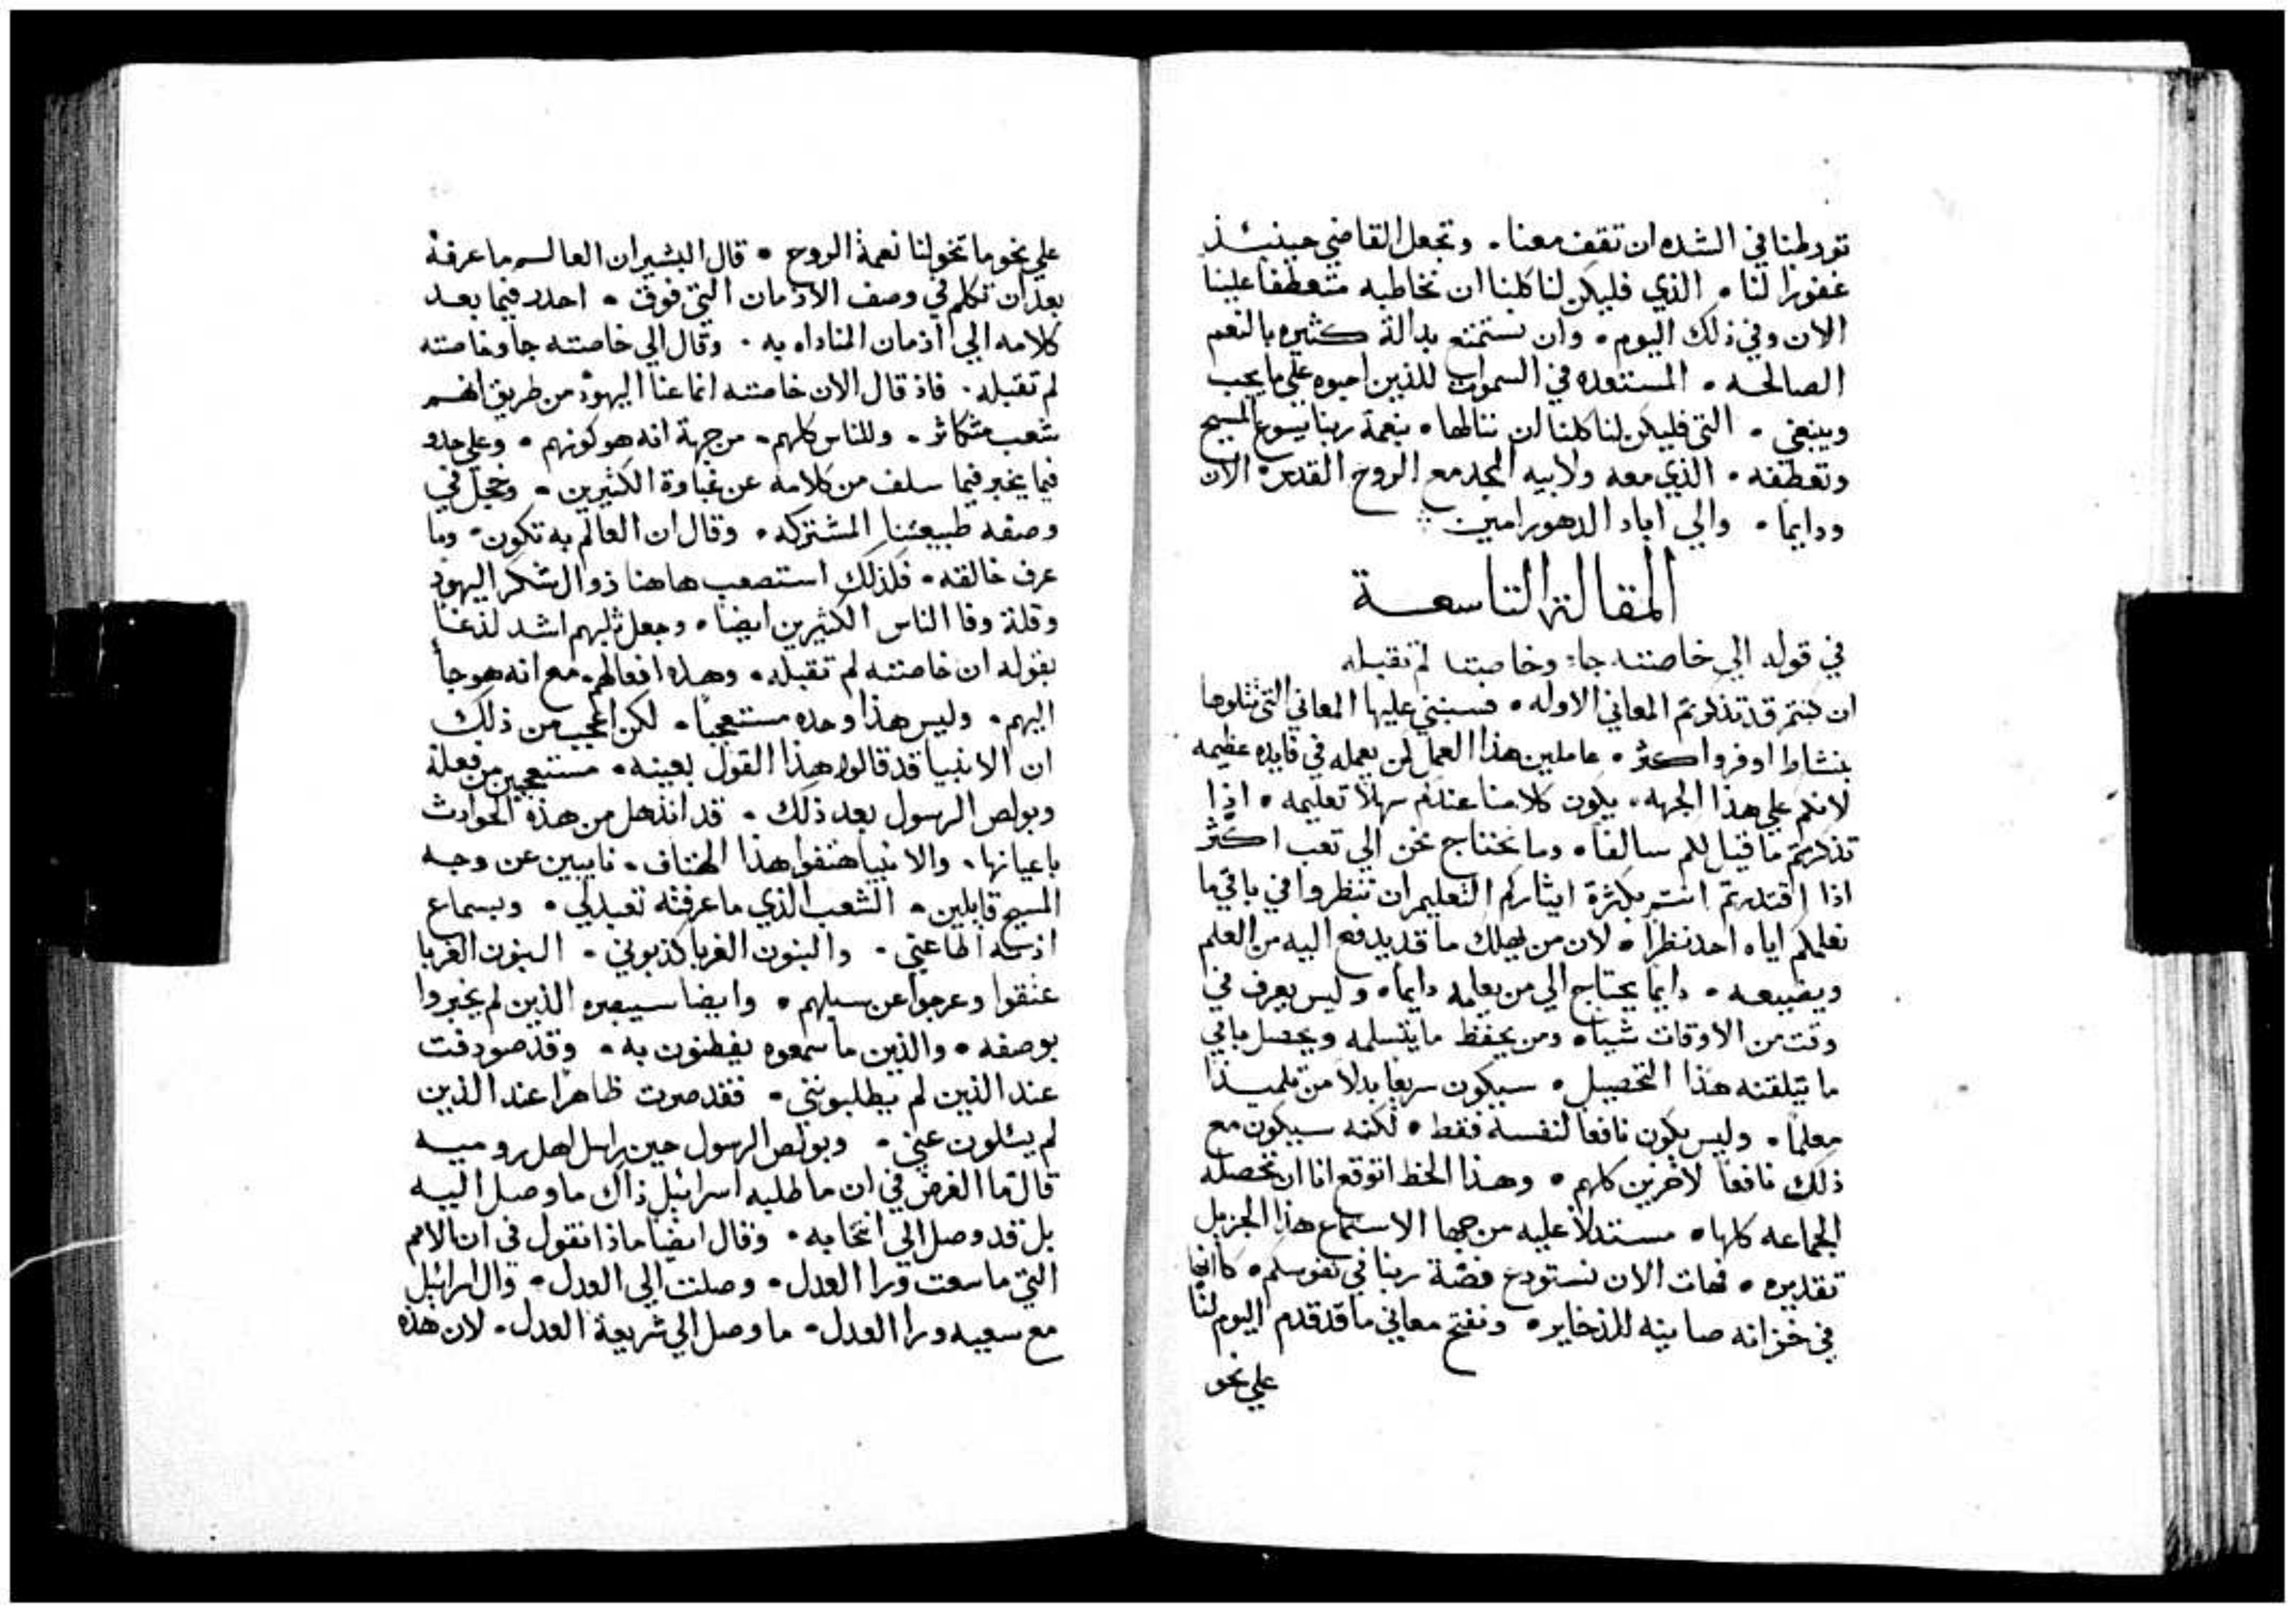 تورطنا في الشده ان تقف معنا . وتجعل القاضي حينئذ
غفورًا لنا . الذي فليكن لنا كلنا ان نخاطبه متعطفا علينا
الان وفي ذلك اليوم . وان نستمتع بدالة كثيره بالنعم
الصالحه . المستعده في السموات للذين احبوه علي ما يجب
وينبغي . التي فليكن لنا كلنا ان ننالها . بنعمة ربنا يسوع المسيح
وتعطفه . الذي معه ولابيه المجد مع الروح القدس الان
ودايمًا . والي اباد الدهور امين
المقالة التاسعة
في قوله الي خاصته جاء وخاصته لم تقبله
ان كنتم قد تذكرتم المعاني الاوله . فسنبني عليها المعاني التي تتلوها
بنشاط اوفر واكثر . عاملين هذا العمل لمن يعمله في فايده عظيمه
لانكم علي هذا الجهه . يكون كلامنا عندكم سهلاً تعليمه . اذا
تذكرتم ما قيل لكم سالفًا . وما نحتاج نحن الي تعب اكثر
اذا اقتدرتم انتم بكثرة ايثاركم التعليم ان تنظروا في باقي ما
نعلمكم اياه احد نظرًا . لان من يهلك ما قد يدفع اليه من العلم
ويضيعه . دايمًا يحتاج الي من يعلمه دايمًا . وليس يعرف في
وقت من الاوقات شيا . ومن يحفظ ما يتسلمه ويحصل باقي
ما يتلقنه هذا التحصيل . سيكون سريعًا بدلاً من تلميذًا
معلمًا . وليس يكون نافعًا لنفسه فقط . لكنه سيكون مع
ذلك نافعًا لاخرين كلهم . وهذا الحظ اتوقع انا ان تحصله
الجماعه كلها . مستدلاً عليه من جهة الاستماع هذا الجزيل
تقديره . فهات الان نستودع فضة ربنا في نفوسكم . كانها
في خزانه صاينه للذخاير . ونفتح معاني ما قد قدم اليوم لنا
علي نحو
علي نحو ما تخولنا نعمة الروح . قال البشير ان العالم ما عرفه
بعد ان تكلم في وصف الازمان التي فوق . احدر فيما بعد
كلامه الي ازمان المناداه به . وقال الي خاصته جا وخاصته
لم تقبله . فاذ قال الان خاصته انما عنا اليهود من طريق انهم
شعب متكاثر . وللناس كلهم . من جهة انه هو كونهم . وعلي حدو
فيما يخبر فيما سلف من كلامه عن غباوة الكثيرين . وخجل في
وصفه طبيعتنا المشتركه . وقال ان العالم به تكون . وما
عرف خالقه . فلذلك استصعب هاهنا زوال شكر اليهود
وقلة وفا الناس الكثيرين ايضًا . وجعل ثلبهم اشد لذعًا
بقوله ان خاصته لم تقبله . وهذه افعالهم . مع انه هو جاً
اليهم . وليس هذا وحده مستعجبًا . لكن اعجب من ذلك
ان الانبيا قد قالوا هذا القول بعينه . مستعجبين من فعله
وبولص الرسول بعد ذلك . قد انذهل من هذه الحوادث
باعيانها . والانبيا هتفوا هذا الهتاف . نايبين عن وجه
المسيح قايلين . الشعب الذي ما عرفته تعبد لي . وبسماع
اذنه اطاعني . والبنون الغربا كذبوني . البنون الغربا
عتقوا وعرجوا عن سبلهم . وايضا سيبصره الذين لم يخبروا
بوصفه . والذين ما سمعوه يفطنون به . وقد صودفت
عند الذين لم يطلبونني . فقد صرت ظاهرًا عند الذين
لم يسئلون عني . وبولص الرسول حين راسل اهل روميه
قال ما الغرض في ان ما طلبه اسرائيل ذاك ما وصل اليه
بل قد وصل الي انتخابه . وقال ايضا ماذا نقول في ان الامم
التي ما سعت ورا العدل . وصلت الي العدل . وال اسرائيل
مع سعييه ورا العدل . ما وصل الي شريعة العدل . لان هذه